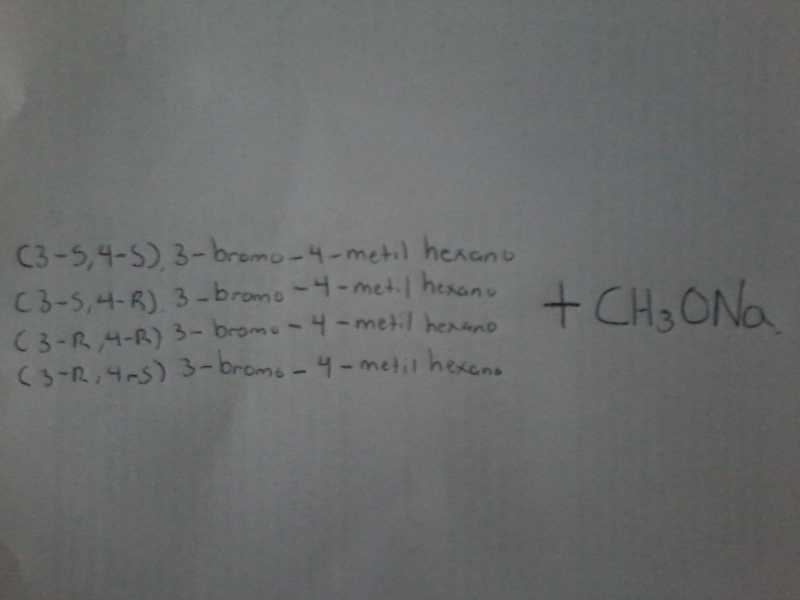 (3-S,4-S). 3-bromo-4-metil hexano
(3-S,4-R). 3-bromo-4-metil hexano
(3-R,4-R) 3-bromo-4-metil hexano
(3-R,4-S) 3-bromo-4-metil hexano
+ CH₃ONa.